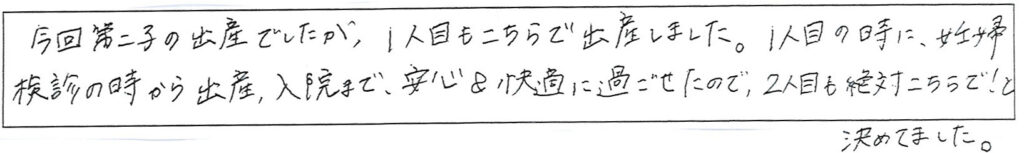 今回第二子の出産でしたが、1人目もこちらで出産しました。1人目の時に、妊婦
検診の時から出産、入院まで、安心&快適に過ごせたので、2人目も絶対こちらで!と
決めてました。